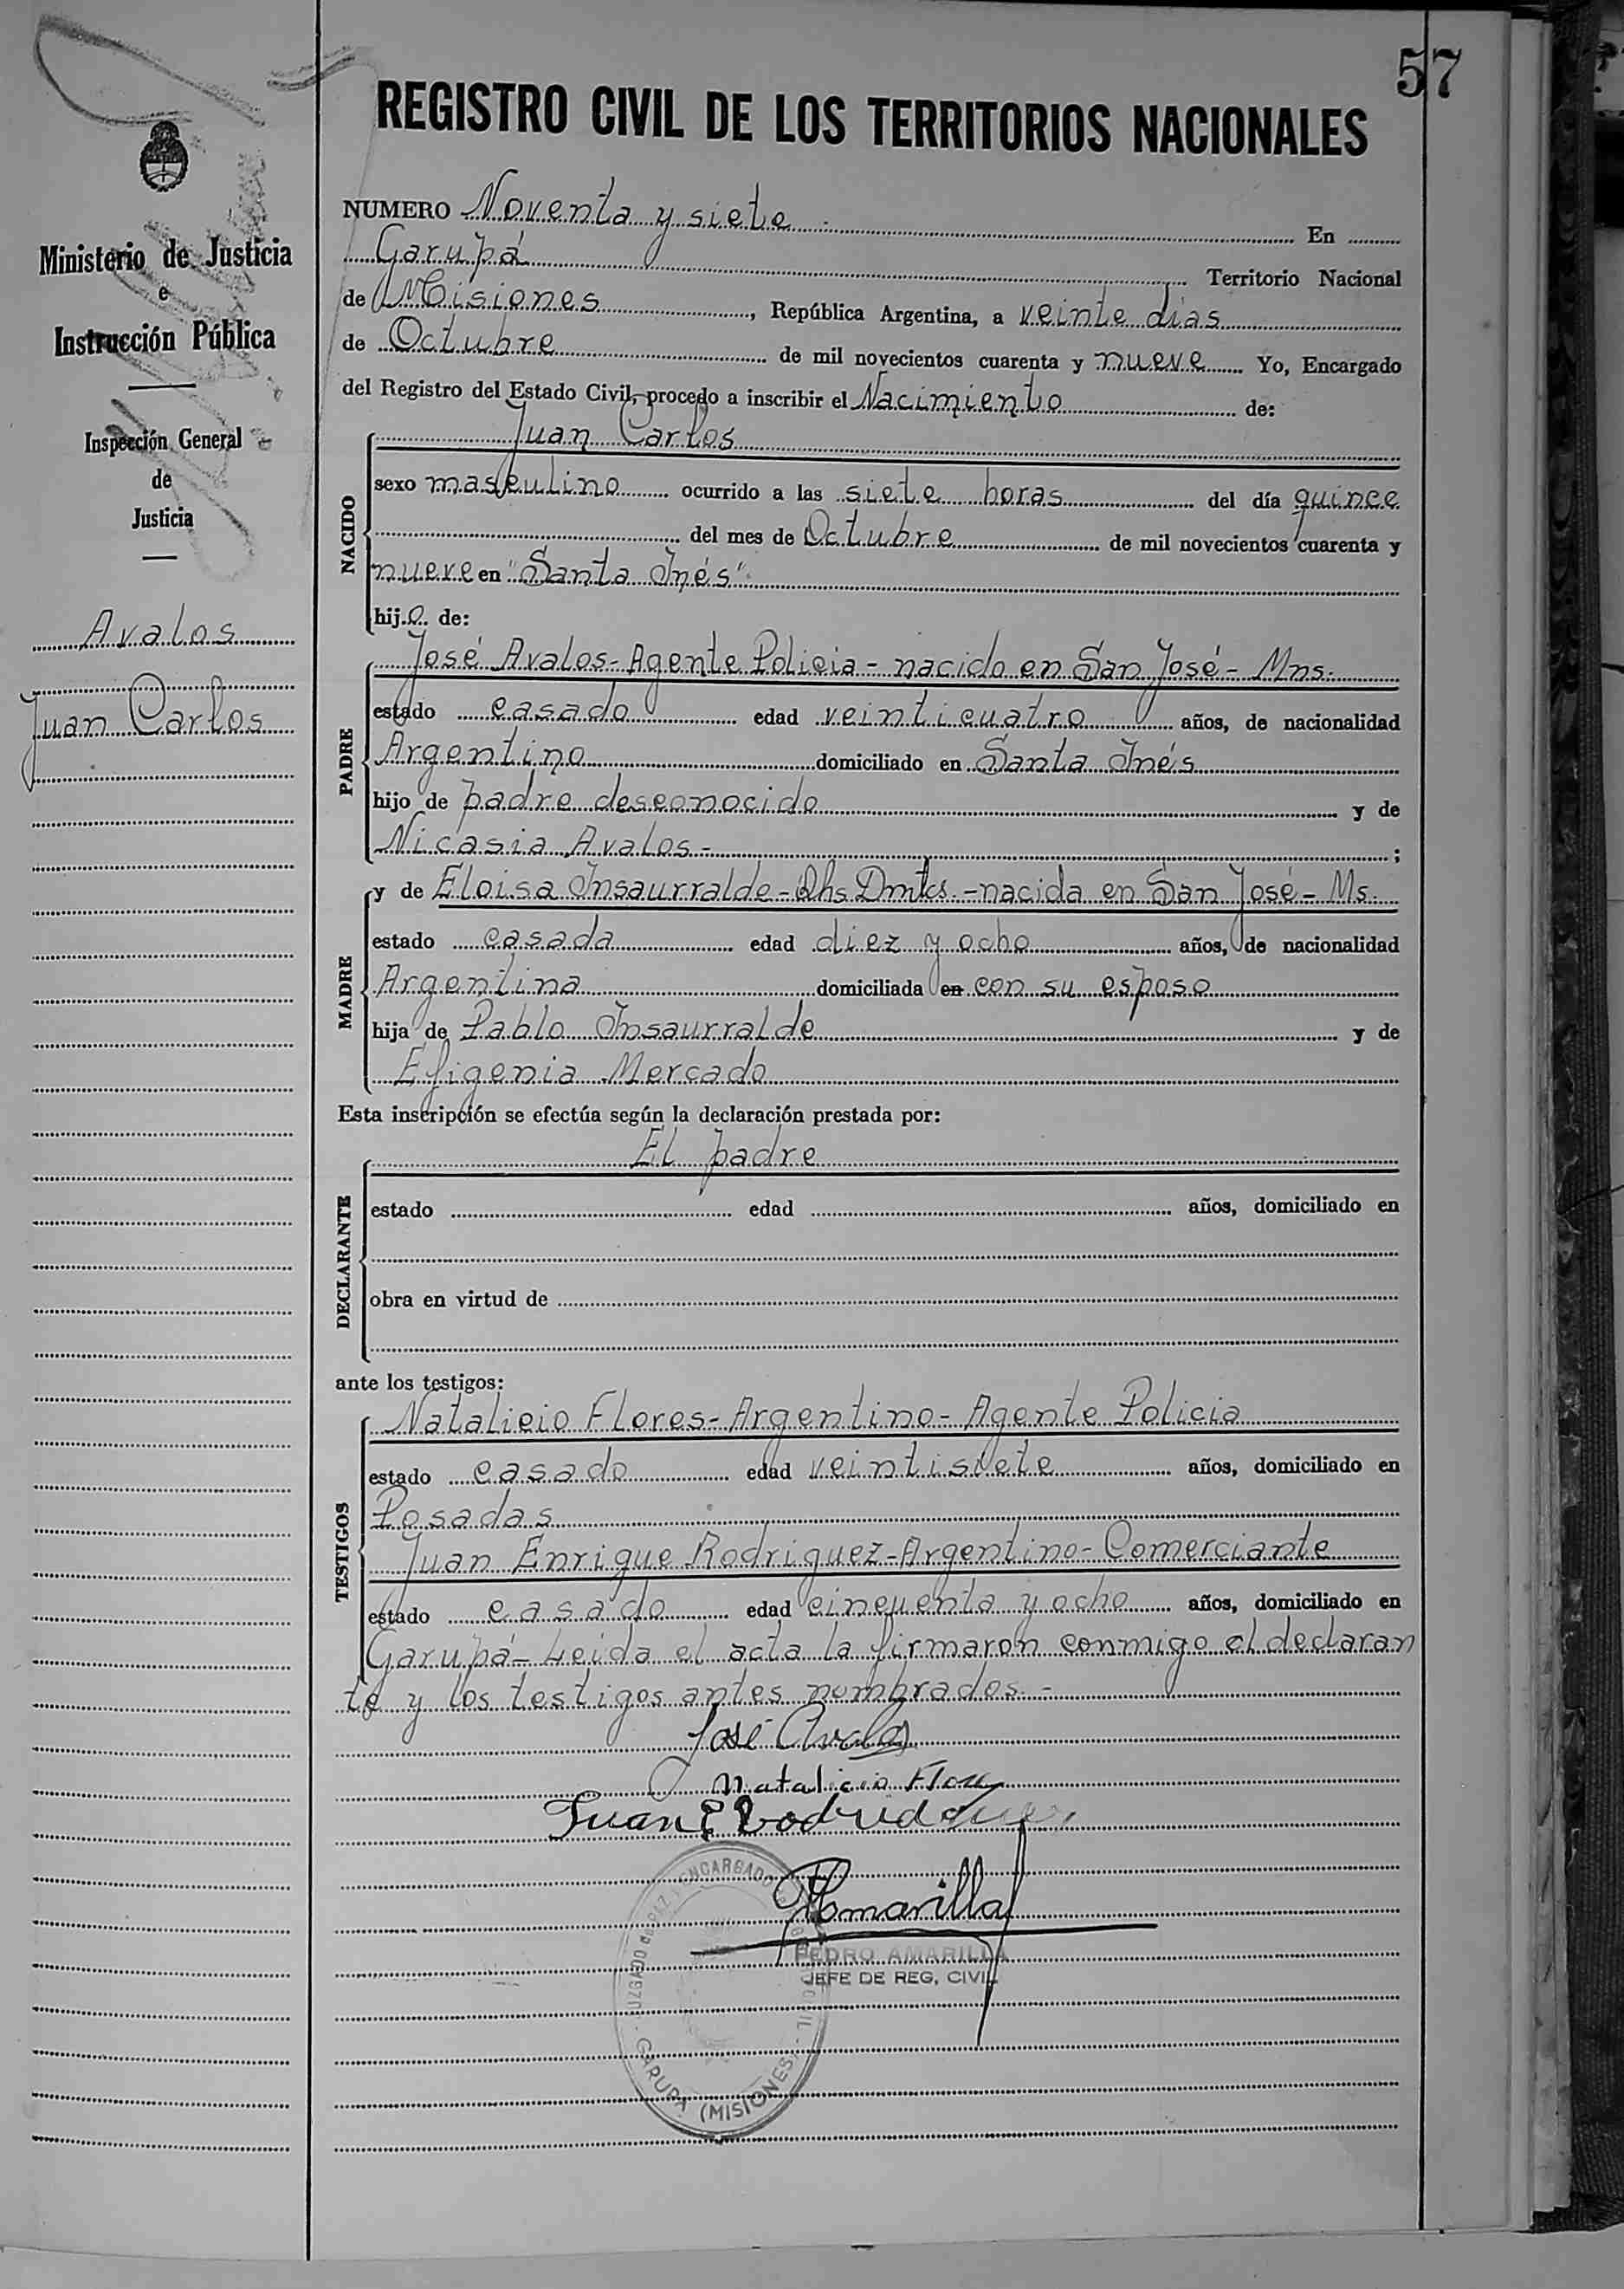 57
REGISTRO CIVIL DE LOS TERRITORIOS NACIONALES
Ministerio de Justicia
e
Instrucción Pública
Inspección General
de
Justicia
Avalos
Juan Carlos
NUMERO Noventa y siete En
Garupá Territorio Nacional
de Misiones, República Argentina, a veinte días
de Octubre de mil novecientos cuarenta y nueve Yo, Encargado
del Registro del Estado Civil, procedo a inscribir el Nacimiento de:
NACIDO
Juan Carlos
sexo masculino ocurrido a las siete horas del día quince
del mes de Octubre de mil novecientos cuarenta y
nueve en "Santa Inés"
hijo de:
PADRE
José Avalos-Agente Policia-nacido en San José-Mns.
estado casado edad veinticuatro años, de nacionalidad
Argentino domiciliado en Santa Inés
hijo de padre desconocido y de
Nicasia Avalos- ;
MADRE
y de Eloisa Insaurralde-Qhs Dmtcs.-nacida en San José-Ms.
estado casada edad diez y ocho años, de nacionalidad
Argentina domiciliada en con su esposo
hija de Pablo Insaurralde y de
Efigenia Mercado
Esta inscripción se efectúa según la declaración prestada por:
DECLARANTE
El padre
estado edad años, domiciliado en
obra en virtud de
ante los testigos:
TESTIGOS
Natalicio Flores-Argentino-Agente Policia
estado casado edad veintisiete años, domiciliado en
Posadas
Juan Enrique Rodriguez-Argentino-Comerciante
estado casado edad cincuenta y ocho años, domiciliado en
Garupá-Leida el acta la firmaron conmigo el declaran
te y los testigos antes nombrados.-
José Avalos
Natalicio Flores
Juan E Rodriguez
PAmarilla
PEDRO AMARILLA
JEFE DE REG. CIVIL
JUZGADO de PAZ y ENCARGADO
CIVIL
GARUPA (MISIONES)